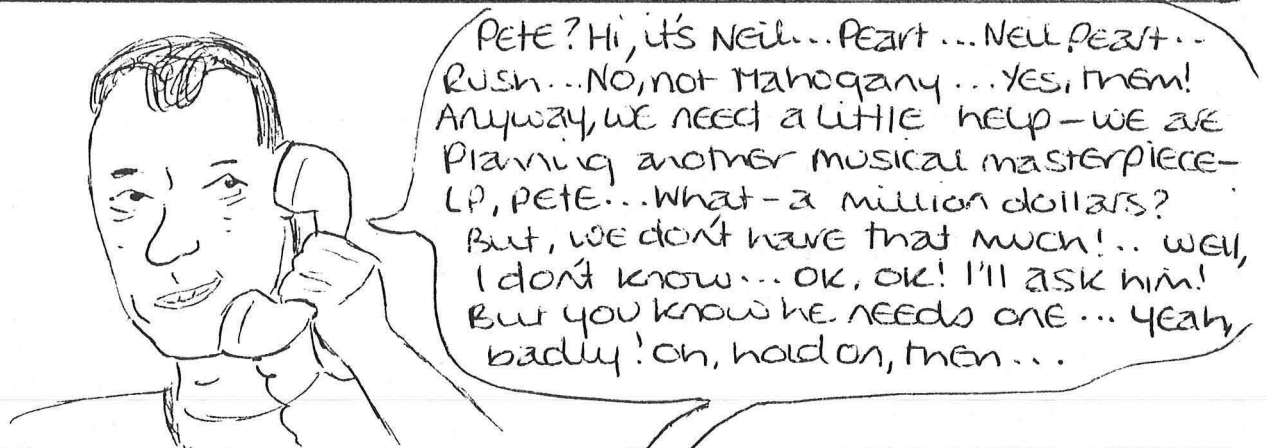 Pete? Hi, it's Neil... Peart... Neil Peart..
Rush... No, not Mahogany... Yes, them!
Anyway, we need a little help - we are
planning another musical masterpiece -
LP, Pete... What - a million dollars?
But, we don't have that much!.. Well,
I don't know... OK, OK! I'll ask him!
But you know he needs one... yeah,
badly! Oh, hold on, then...